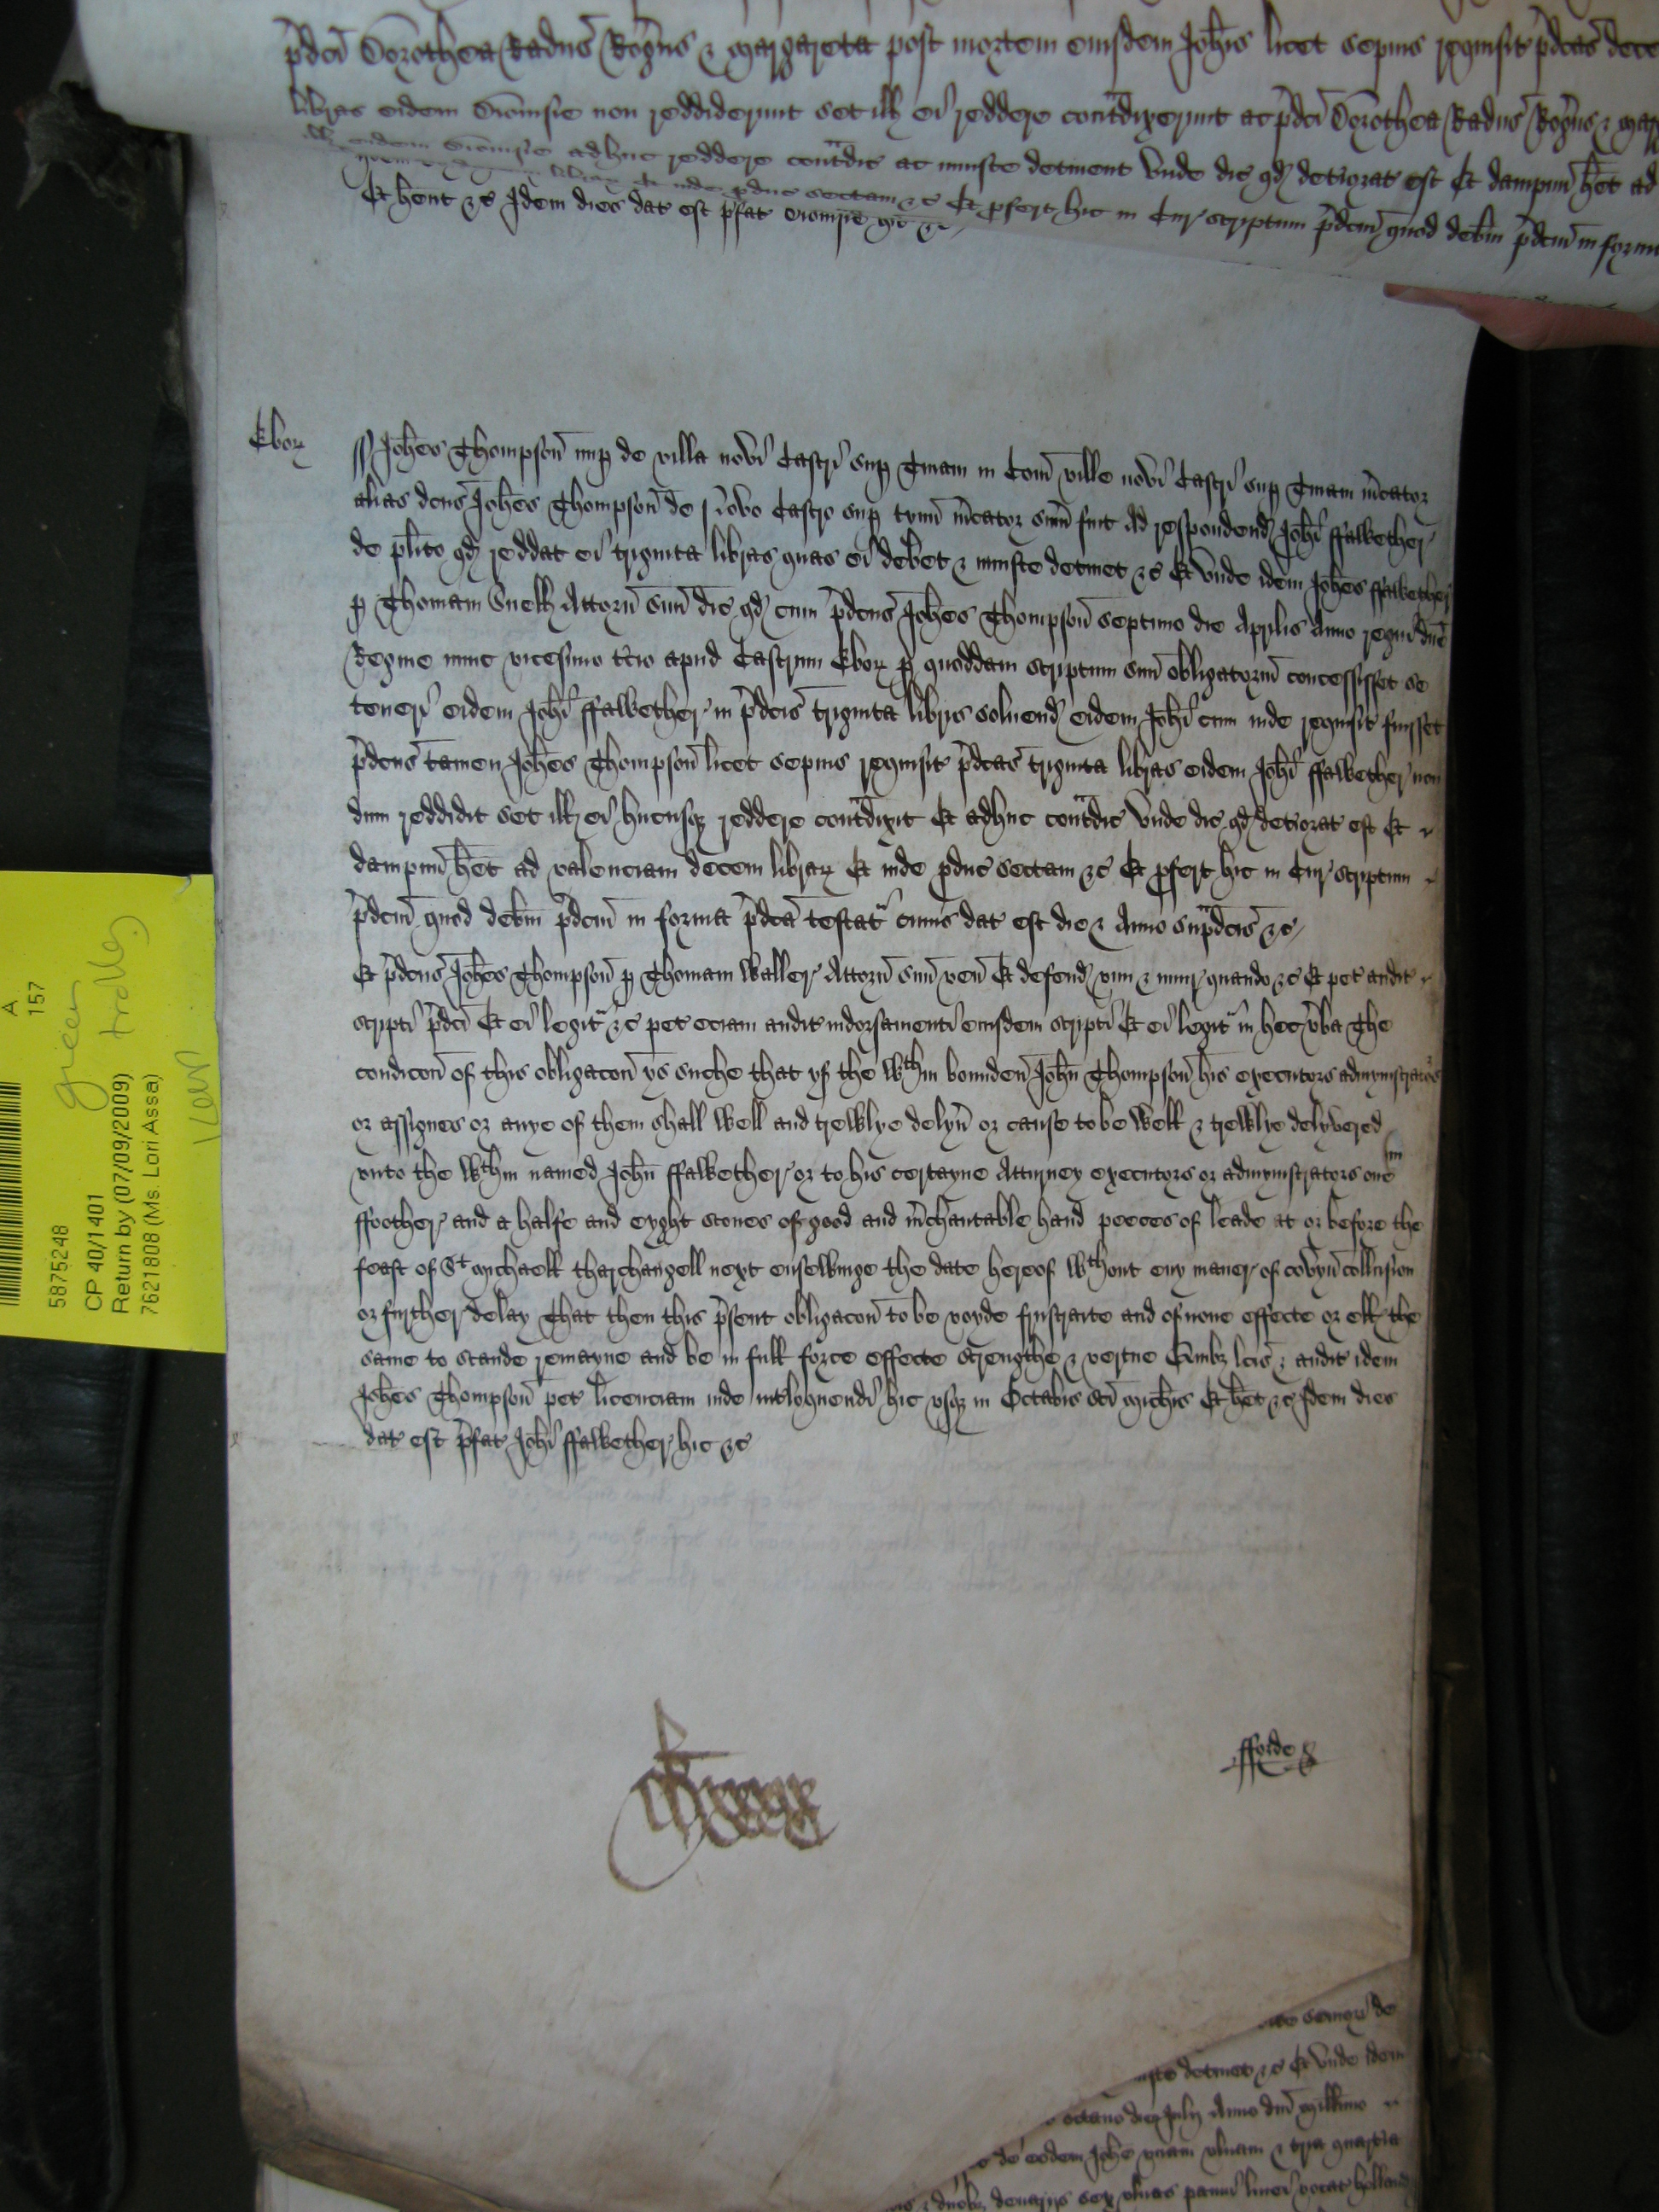 p̄dcī Dorothea Radūs Rog̃us & Margareta post mortem eiusdem Joh̃is licet sepius requisit p̄dcas dece
libras eidem Dionisie non reddiderunt set ill ei reddere cont̃dixerunt ac p̄dcī Dorothea Radūs Rog̃us & Mar
ill eidem Dionisie adhuc reddere cont̃dic ac iniuste detinent Vnde dic qd deteriorat est Et dampnū h̃et ad
libraꝝ Et inde p̄duc sectam &c Et p̄fert hic in Cur scriptum p̄dcm̄ quod debm̄ p̄dcm̄ in form
Et h̃ent &c Idem dies dat est p̄fat Dionisie hic &c
Eboꝝ
ss Joh̃es Thompson nup de villa novi Castri sup Tinam in Com̄ ville novi Castri sup Tinam m̃cator
alias dc̃us Joh̃es Thompson de Novo Castro sup tynū m̃cator sum̄ fuit Ad respondend Joh̃i ffalbether
de pl̃ito qd reddat ei triginta libras quas ei debet & iniuste detinet &c Et Vnde idem Joh̃es ffalbether
p Thomam Snell Attorn̄ suū dic qd cum p̄dc̃us Joh̃es Thompson septimo die Aprilis Anno regni dn̄e
Regine nunc vicesimo t̃cio apud Castrum Eboꝝ p quoddam scriptum suū obligatoriū concessisset se
teneri eidem Joh̃i ffalbether in p̄dcis triginta libris soluend eidem Joh̃i cum inde requisit fuisset
p̄dc̃us tamen Joh̃es Thompson licet sepius requisit p̄dcas triginta libras eidem Joh̃i ffalbether non
dum reddidit set ill ei hucusqꝫ reddere cont̃dixit Et adhuc cont̃dic Vnde dic qd deteriorat est Et
dampnū h̃et ad valenciam decem libraꝝ Et inde p̄duc sectam &c Et p̄fert hic in Cur scriptum
p̄dcm̄ quod debm̄ p̄dcm̄ in forma p̄dca testat̃ cuius dat est die & Anno sup̄dcis &c
Et p̄dc̃us Joh̃es Thompson p Thomam Waller Attorn̄ suū ven̄ Et defend vim & iniur quando &c Et pet audit
scripti p̄dcī Et ei legit̃ &c pet eciam audit indorsamenti eiusdem scripti Et ei legit̃ in hec v̄ba The
condicon̄ of this obligacon̄ ys suche that yf the wthin bounden John Thompson his executors admynistrators
or assignes or anye of them shall well and trewlye delyv̄ or cause to be well & trewlye delyvered
vnto the wthin named John ffalbether or to his certayne Atturney executors or admynistrators one
ffoother and a halfe and eyght stones of good and m̃chantable hand peeces of leade at or before the
feast of St mychaell tharchangell next ensewinge the date hereof wthout eny maner of covyn̄ collusion
or further delay That then this p̄sent obligacon̄ to be voyde frustrate and of none effecte or ells the
same to stande remayne and be in full force effecte strengthe & vertue Quibꝫ lc̃is & audit idem
Joh̃es Thompson pet licenciam inde int̃loquendi hic vsqꝫ in Octabis sc̄i Mich̃is Et h̃et &c Idem dies
dat est p̄fat Joh̃i ffalbether hic &c
fforde
iuste detinet &c Et Vnde idem
octavo die Julij Anno dn̄i millimo
de eodem Joh̃e vnam vlnam & tria quartia
& duobꝫ denarijs sex vlnas panni linei vocat holland
A
157
green
trolley
Ken
5875248
CP 40/1401
Return by (07/09/2009)
7621808 (Ms. Lori Assa)